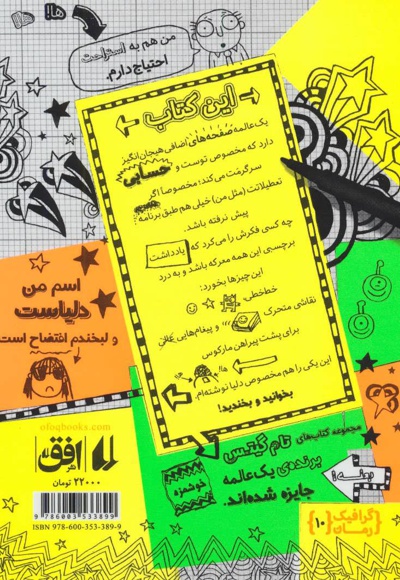 ها!
ها!
من هم به استراحت
احتیاج دارم.
این کتاب
یک عالمه صفحه‌های اضافی هیجان‌انگیز
دارد که مخصوص توست و حسابی
سرگرمت می‌کند؛ مخصوصا اگر
تعطیلاتت (مثل من) خیلی هم طبق برنامه
پیش نرفته باشد.
چه کسی فکرش را می‌کرد که یادداشت
برچسبی این همه معرکه باشد و به درد
این چیزها بخورد:
خط‌خطی،
نقاشی متحرک
و پیغام‌هایی عالی
برای پشت پیراهن مارکوس
این یکی را هم مخصوص دلیا نوشته‌ام.
بخوانید و بخندید!
اسم من
دلیاست
و لبخندم افتضاح است
مجموعه کتاب‌های تام گیتس
برنده‌ی یک عالمه
جایزه شده‌اند.
خوشمزه
ofoqbooks.com
نشر افق
۲۲۰۰۰ تومان
9 786003 533899
ISBN 978-600-353-389-9
گرافیک
رمان
۱۰